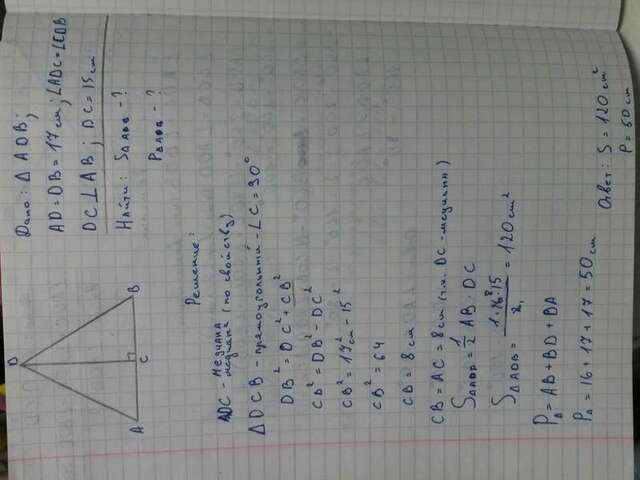 D
A
C
B
Дано: △ ADB;
AD = DB = 17 см; ∠ADC = ∠CDB
DC ⊥ AB; DC = 15 см
Найти: S△ADB - ?
P△ADB - ?
Решение:
DC - медиана (по свойству)
△DCB - прямоугольный - ∠C = 90°
DB² = DC² + CB²
CB² = DB² - DC²
CB² = 17²см - 15²
CB² = 64
CB = 8 см
CB = AC = 8 см (т.к. DC - медиана)
S△ADB = 1/2 AB · DC
S△ADB = 1·16⁸·15/2₁ = 120 см²
P△ = AB + BD + BA
P△ = 16 + 17 + 17 = 50 см
Ответ: S = 120 см²
P = 50 см